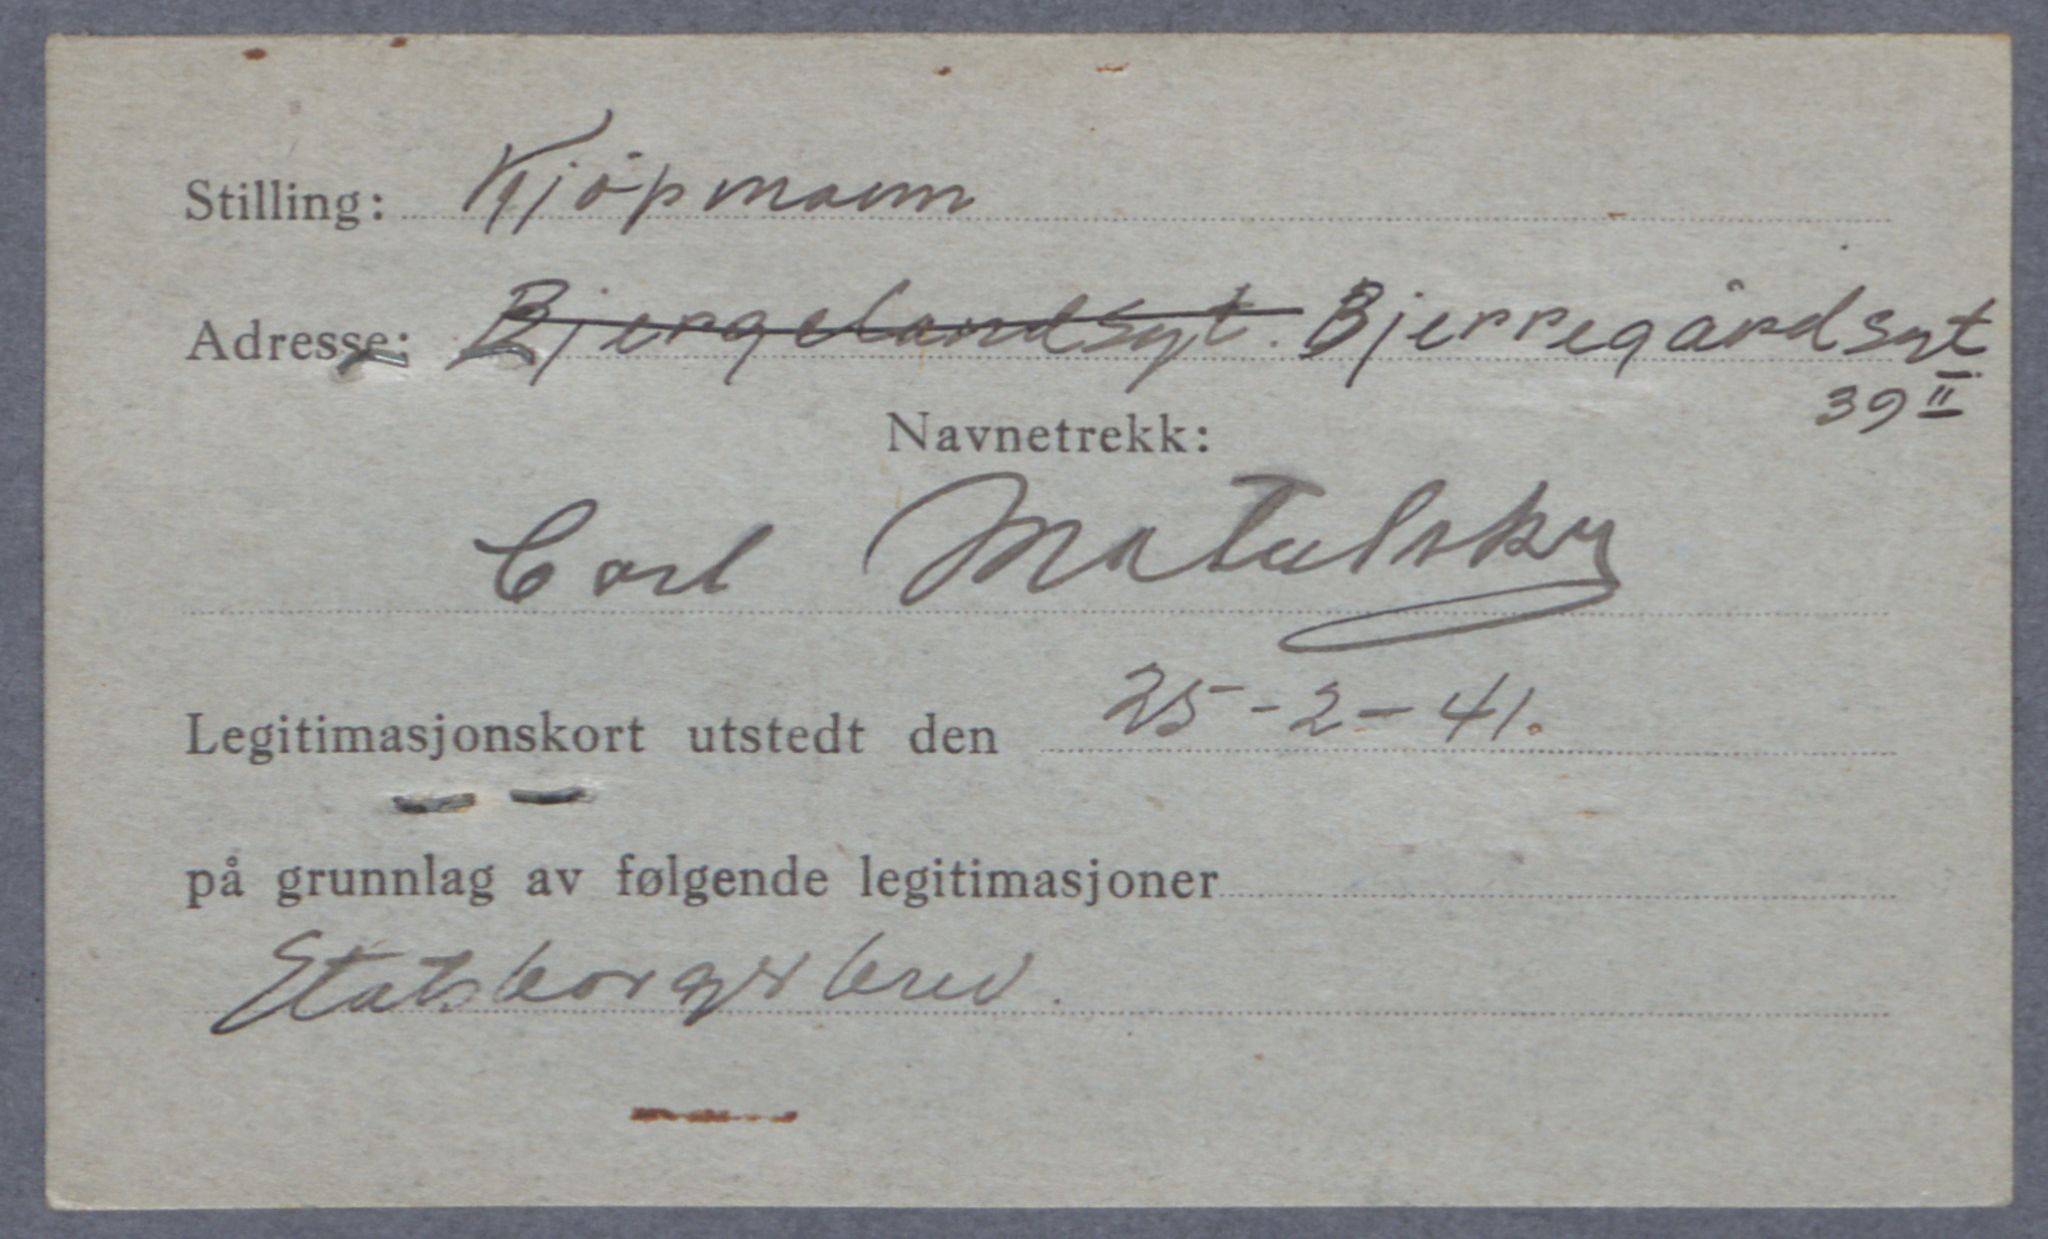 Stilling: Kjöpmann
Adresse: Bjergelandsgt. Bjerregårdsgt
39 II
Navnetrekk:
Carl Matulsky
Legitimasjonskort utstedt den 25-2-41.
på grunnlag av følgende legitimasjoner
Statsborgerbrev.